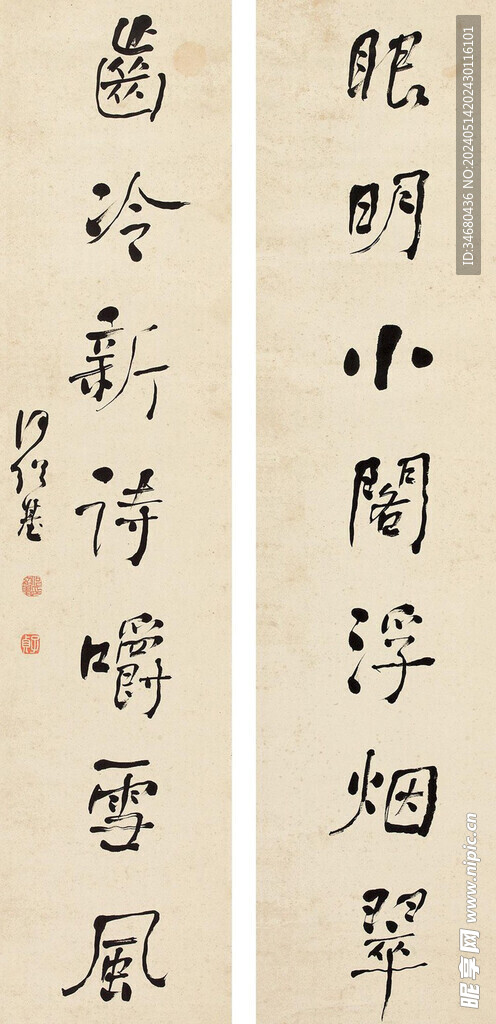 眼明小閣浮烟翠
齒冷新詩嚼雪風
何紹基
ID:34680436 NO:20240514202430116101
昵享网 www.nipic.cn